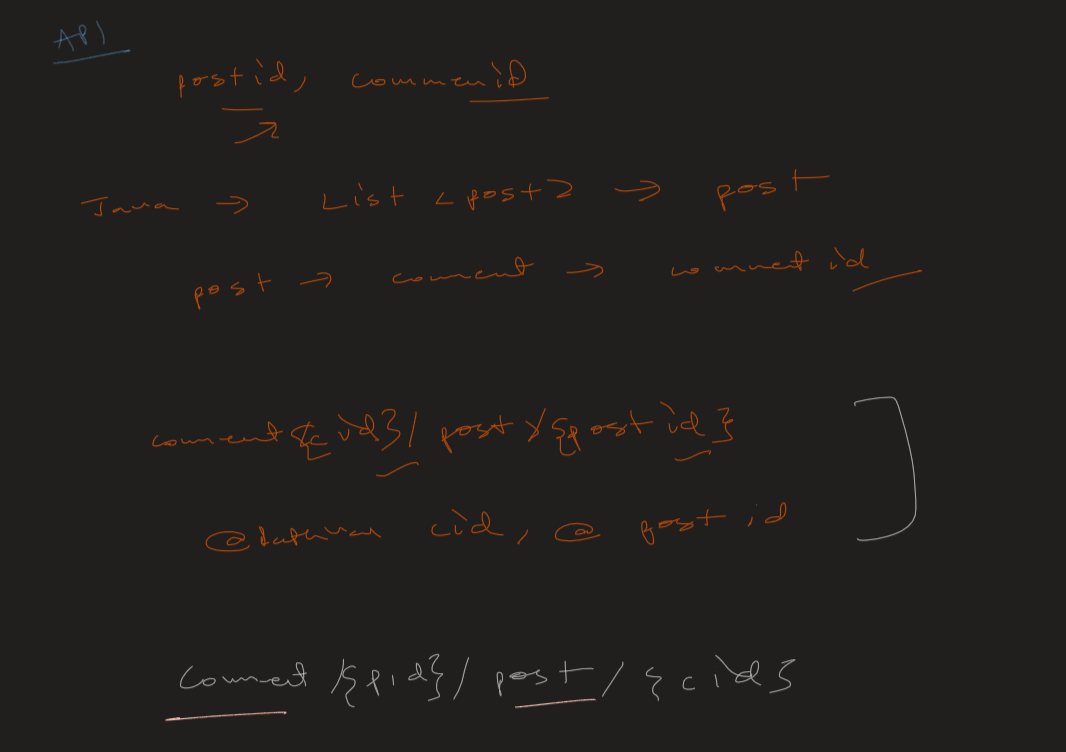 API
postid, commeniD
Java → List <post> → post
post → comment → comment id
comment {cid}/ post/{post id}
@ cid, @ post id
Comment /{pid}/ post / {cid}